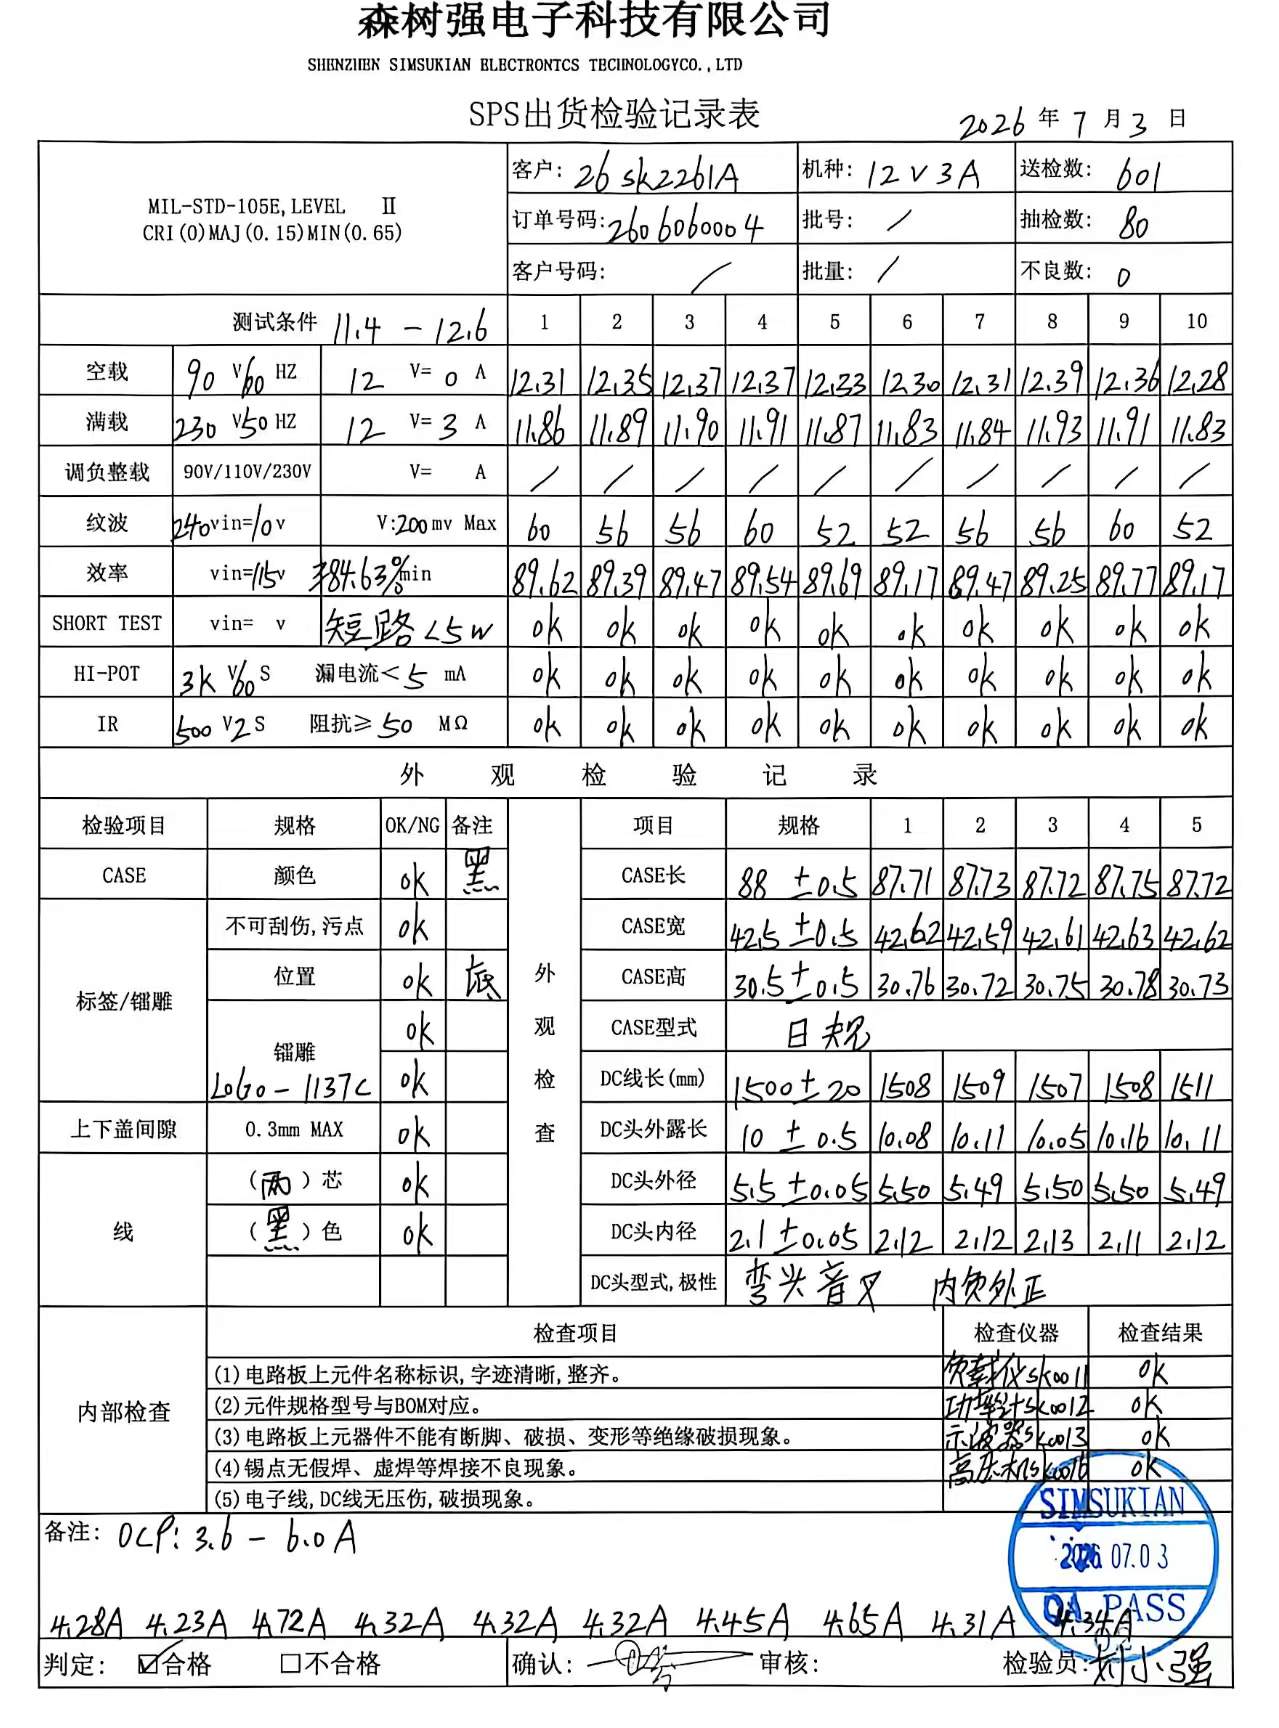 森树强电子科技有限公司
SHENZHEN SIMSUKIAN ELECTRONTCS TECHNOLOGYCO.,LTD
SPS出货检验记录表
2026 年 7 月 3 日
MIL-STD-105E,LEVEL Ⅱ
CRI(0)MAJ(0.15)MIN(0.65)
客户: 26sk2261A 机种: 12V3A 送检数: 601
订单号码: 2606060004 批号: / 抽检数: 80
客户号码: / 批量: / 不良数: 0
测试条件 11.4 - 12.6 1 2 3 4 5 6 7 8 9 10
空载 90 V 60 HZ 12 V= 0 A 12.31 12.35 12.37 12.37 12.33 12.30 12.31 12.39 12.36 12.28
满载 230 V 50 HZ 12 V= 3 A 11.86 11.89 11.90 11.91 11.87 11.83 11.84 11.93 11.91 11.83
调负整载 90V/110V/230V V= A / / / / / / / / / /
纹波 240vin=/0v V:200mv Max 60 56 56 60 52 52 56 56 60 52
效率 vin=115v 84.63% min 89.62 89.39 89.47 89.54 89.69 89.17 89.47 89.25 89.77 89.17
SHORT TEST vin= v 短路<5W ok ok ok ok ok ok ok ok ok ok
HI-POT 3K V 60 S 漏电流< 5 mA ok ok ok ok ok ok ok ok ok ok
IR 500 V 2 S 阻抗≥ 50 MΩ ok ok ok ok ok ok ok ok ok ok
外 观 检 验 记 录
检验项目 规格 OK/NG 备注 外观检查 项目 规格 1 2 3 4 5
CASE 颜色 ok 黑 CASE长 88 ±0.5 87.71 87.73 87.72 87.75 87.72
标签/镭雕 不可刮伤,污点 ok CASE宽 42.5 ±0.5 42.62 42.59 42.61 42.63 42.62
位置 ok 底 CASE高 30.5 ±0.5 30.76 30.72 30.75 30.78 30.73
镭雕 ok CASE型式 日规
LOGO - 1137C ok DC线长(mm) 1500±20 1508 1509 1507 1508 1511
上下盖间隙 0.3mm MAX ok DC头外露长 10 ± 0.5 10.08 10.11 10.05 10.16 10.11
线 (两)芯 ok DC头外径 5.5 ±0.05 5.50 5.49 5.50 5.50 5.49
(黑)色 ok DC头内径 2.1 ±0.05 2.12 2.12 2.13 2.11 2.12
DC头型式,极性 弯头音叉 内负外正
内部检查 检查项目 检查仪器 检查结果
(1)电路板上元件名称标识,字迹清晰,整齐。 负载仪sk0011 ok
(2)元件规格型号与BOM对应。 功率计sk0012 ok
(3)电路板上元器件不能有断脚、破损、变形等绝缘破损现象。 示波器sk0013 ok
(4)锡点无假焊、虚焊等焊接不良现象。 高压机sk0016 ok
(5)电子线,DC线无压伤,破损现象。
SIMSUKIAN
2026.07.03
QA PASS
备注: OCP: 3.6 - 6.0A
4.28A 4.23A 4.72A 4.32A 4.32A 4.32A 4.45A 4.65A 4.31A 4.34A
判定: ☑合格 □不合格 确认: 审核: 检验员: 刘小强